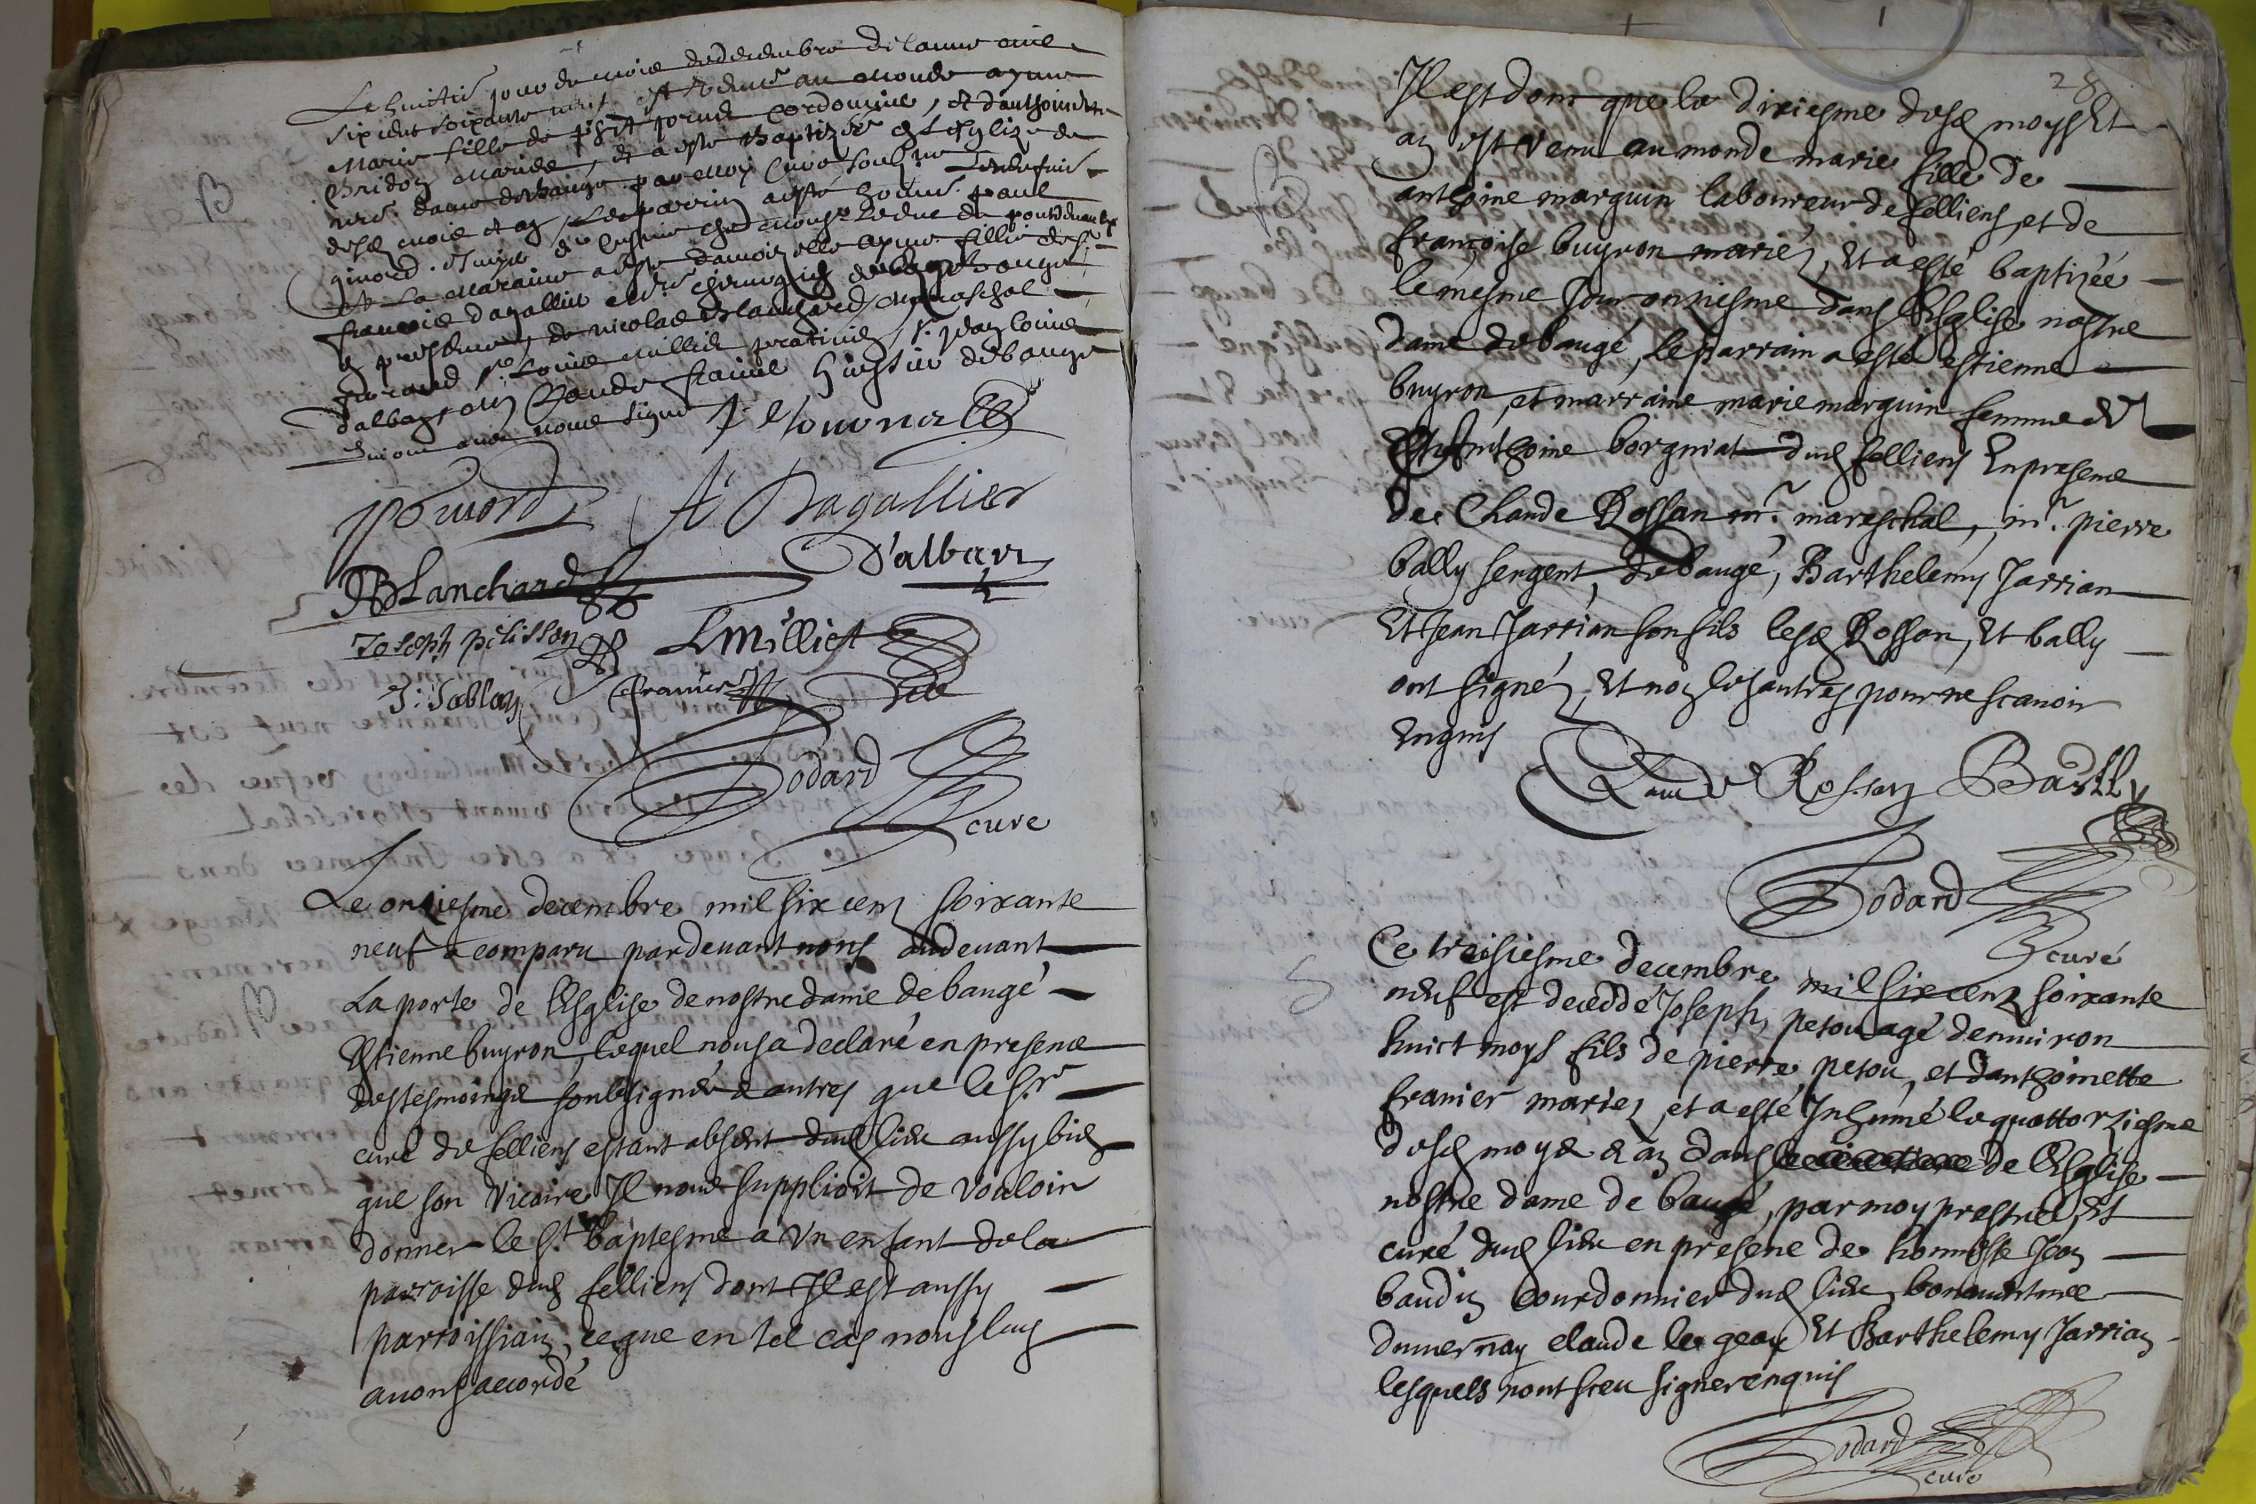 Le huictie jour du mois de decembre de l'anne mil
six cent soixante neuf est venue au monde ayme
Marie fille de cordonnier, et d'anthoinette
Bridon maries, et a este Baptizée en l'esglize de
nre dame de Baugé par moy curé soubsigné
desd mois et an, Le parrin a esté paul
pouvoird
Et la Maraine a esté damoizelle ayme fillie de
francois dagallier mre chirurgien de Baugé
en presence de nicolas Blanchard mareschal
Louis millier praticien, Sr. Jean louis
d'alban huissier de baugé
avec nous signé
D'alban
A Dagallier
Blanchard
Joseph pelisson
L Milliet
J: Sablon
Dodard
curé
Le onziesme decembre mil six cens soixante
neuf a comparu pardevant nous audevant
la porte de l'Esglise de nostre dame de baugé
Estienne buyron, lequel nous a declaré en presence
des tesmoings soubsignés & autres que le Sr.
curé de felliens estant absent dud lieu aussy bien
que son vicaire Il nous supplioit de vouloir
donner le St. baptesme a un enfant de la
parroisse dud felliens dont Il est aussy
parroissian, ce que en tel cas nous luy
avons accordé
28
Il est donc que le diziesme desd moys Et
an est venu au monde marie fille de
anthoine marguin laboureur de felliens, et de
françoise buyron mariez, Et a esté baptizée
le mesme jour onziesme dans l'Esglise nostre
dame de baugé, le parrain a esté estienne
buyron, et marraine marie marguin femme de
Anthoine borgniat dud felliens En presence
de Claude Rossan mr. mareschal, mr. pierre
bally sergent, de baugé, Barthelemy Jarrian
Et Jean Jarrian son fils lesd Rossan, Et bally
ont signéz, Et non les autres pour ne scavoir
enquis
Claude Rossan Bailly
Dodard
curé
Ce treisiesme decembre mil six cenz soixante
neuf est decedde Joseph petou agé denviron
huict moys fils de pierre petou, et d'anthoinette
franier mariez, et a esté Inhumé le quattorziesme
desd moys & an dans de l'Esglise
nostre dame de baugé, par moy prestre, Et
curé dud lieu en presence de honneste Jean
baudin courdonnier dud lieu, bonaventure
duvernay claude le geay Et Barthelemy Jarrian
lesquels nont sceu signer enquis
Dodard
curé